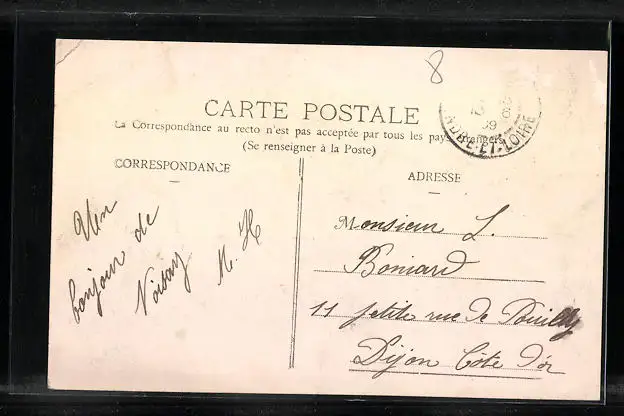 8
CARTE POSTALE
La Correspondance au recto n'est pas acceptée par tous les pays étrangers
(Se renseigner à la Poste)
CORRESPONDANCE
ADRESSE
INDRE-ET-LOIRE
Un
bonjour de
Noizay
M. H
Monsieur L.
Boniard
11 petite rue de Pouilly
Dijon Côte d'or